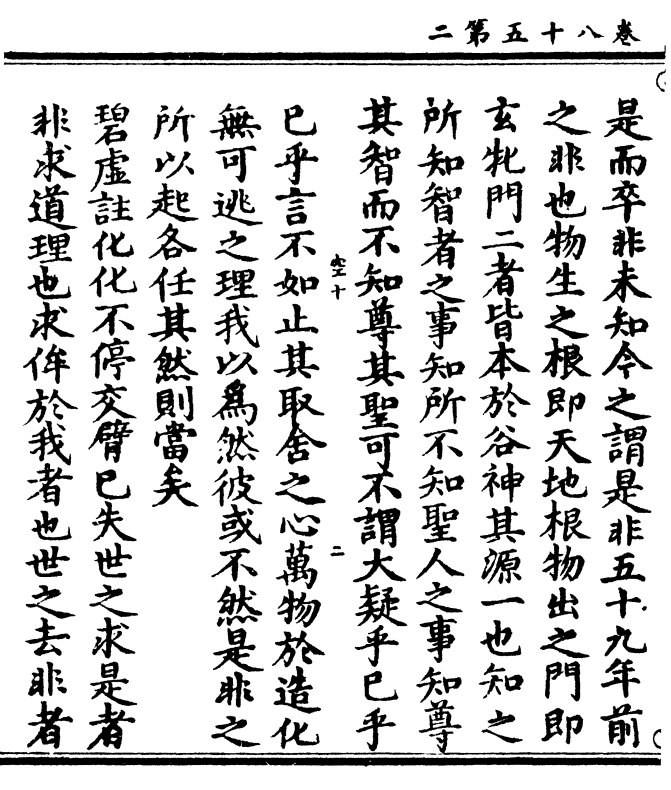 二第五十八卷
是而卒非未知今之謂是非五十九年前
之非也物生之根即天地根物出之門即
玄牝門二者皆本於谷神其源一也知之
所知智者之事知所不知聖人之事知尊
其智而不知尊其聖可不謂大疑乎已乎
空十
二
已乎言不如止其取舍之心萬物於造化
無可逃之理我以爲然彼或不然是非之
所以起各任其然則當矣
碧虛註化化不停交臂已失世之求是者
非求道理也求侔於我者也世之去非者